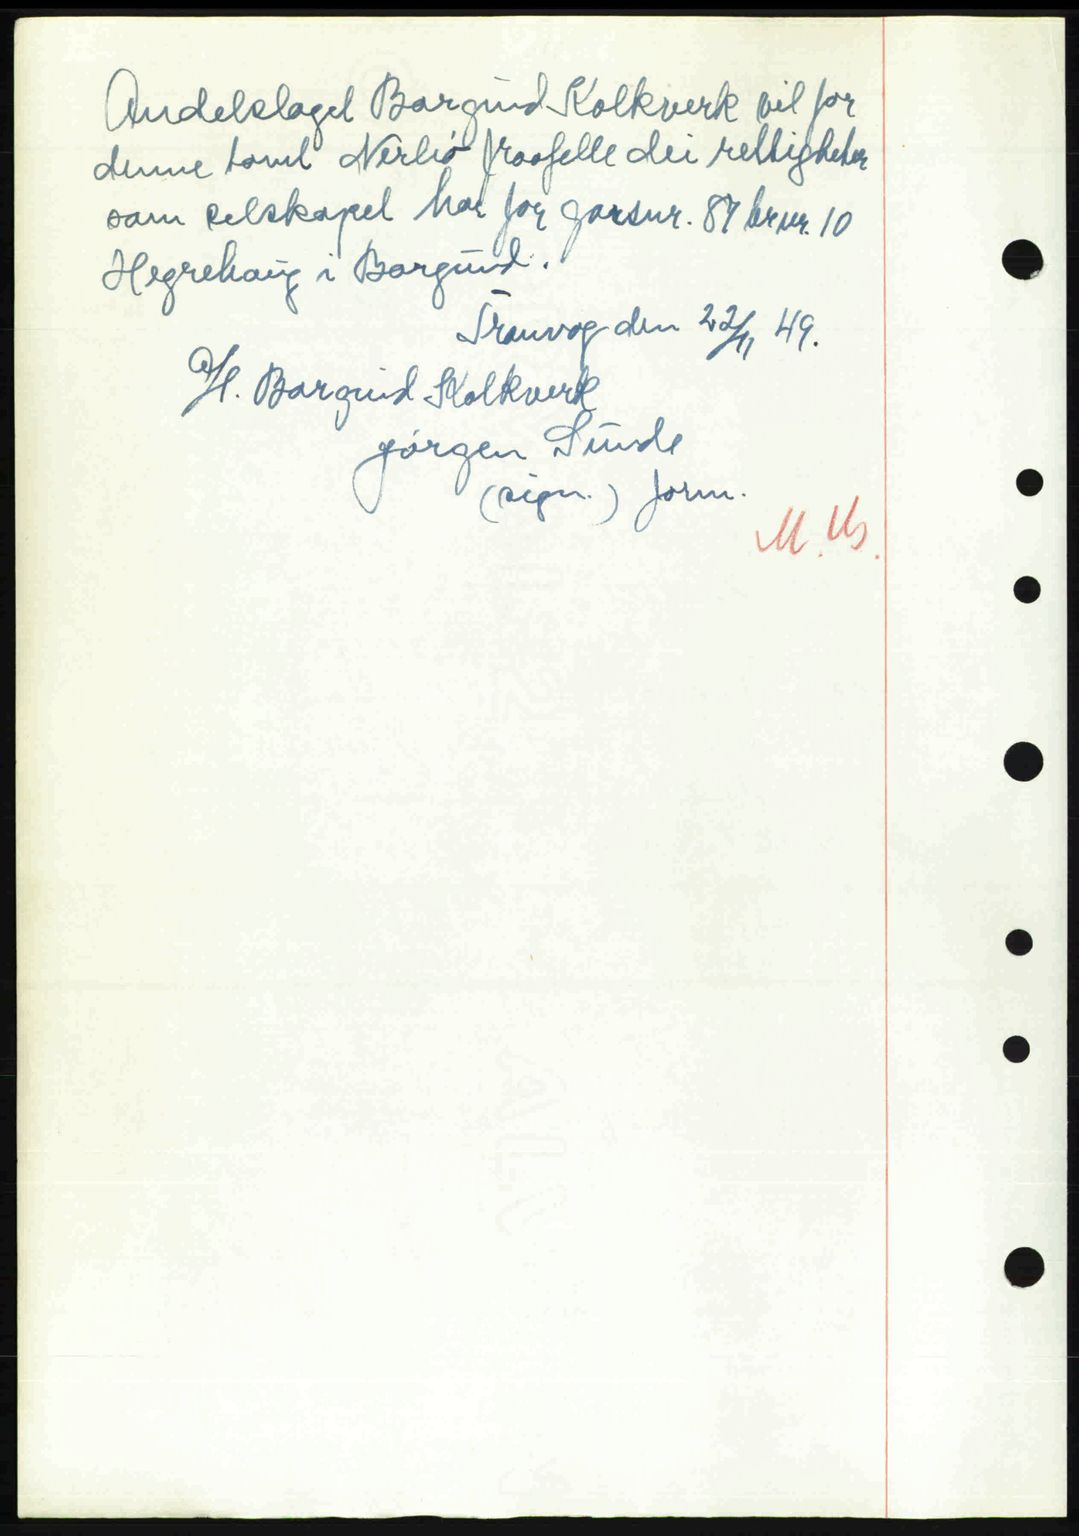 Andelslaget Borgund Kolkverk vil for
denne tomt Nerliø fraafelle dei rettigheter
som selskapet har for garsnr. 87 brnr. 10
Hegrehaug i Borgund.
Tranvog den 22/11 49.
A/L. Borgund Kolkverk
Jørgen Sunde
(sign.) form.